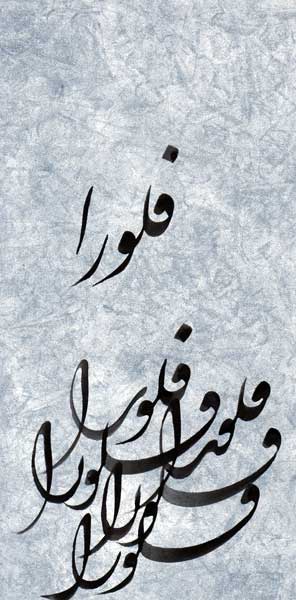 فلورا
فلورا
فلورا
فلورا
فلورا
فلورا